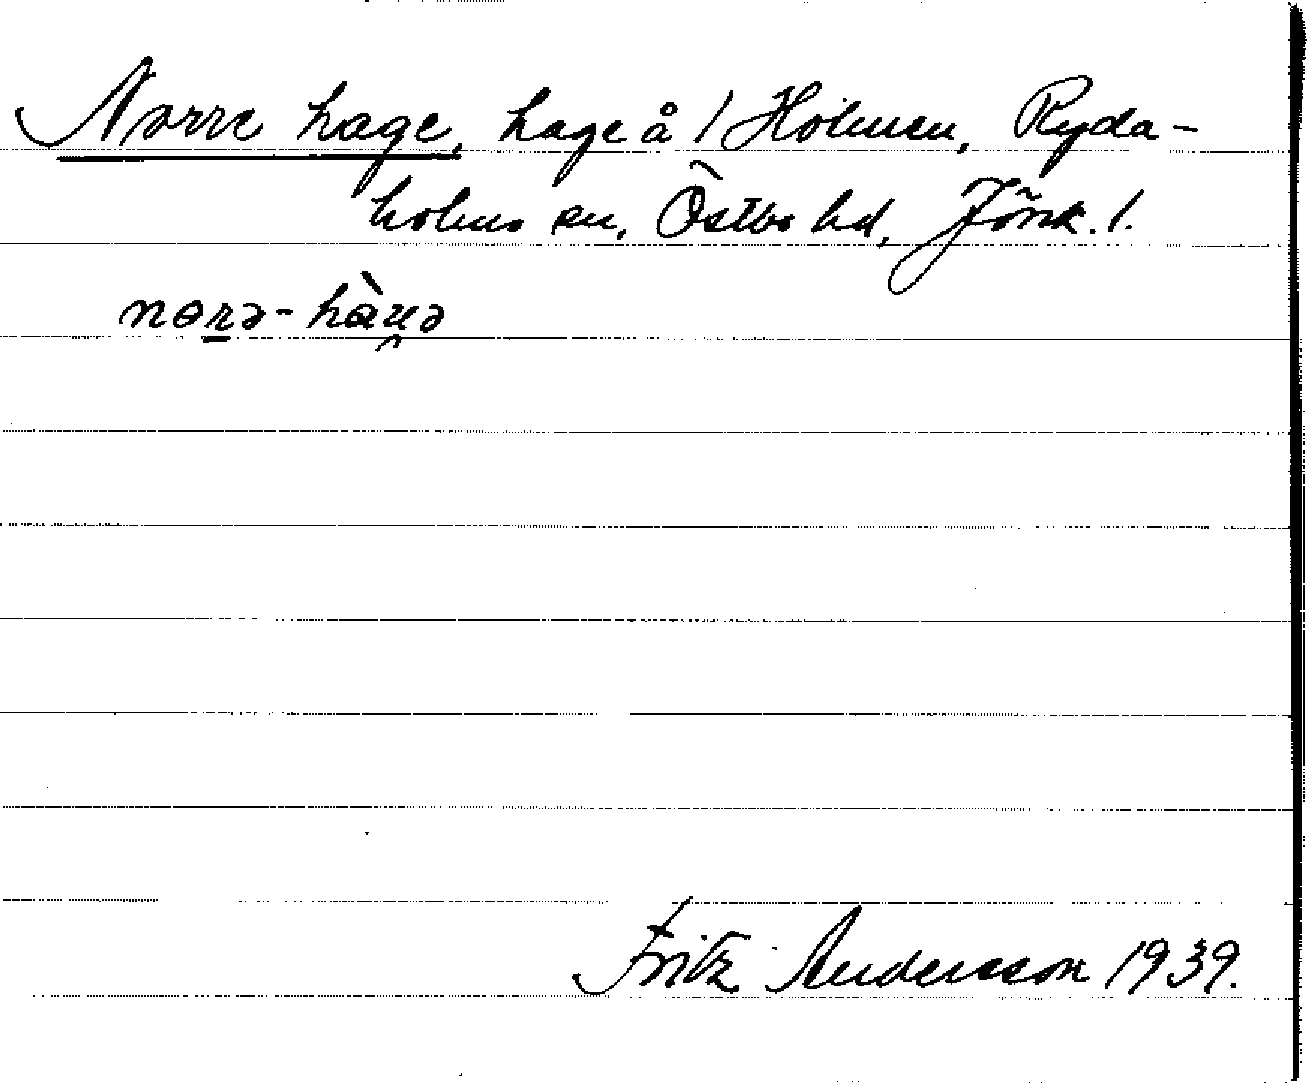 Norre hage, hage å 1 Holmen, Ryda-
holms sn, Östbo hd, Jönk. l.
nɵr̲ə-hàu̯ə
Fritz Andersson 1939.